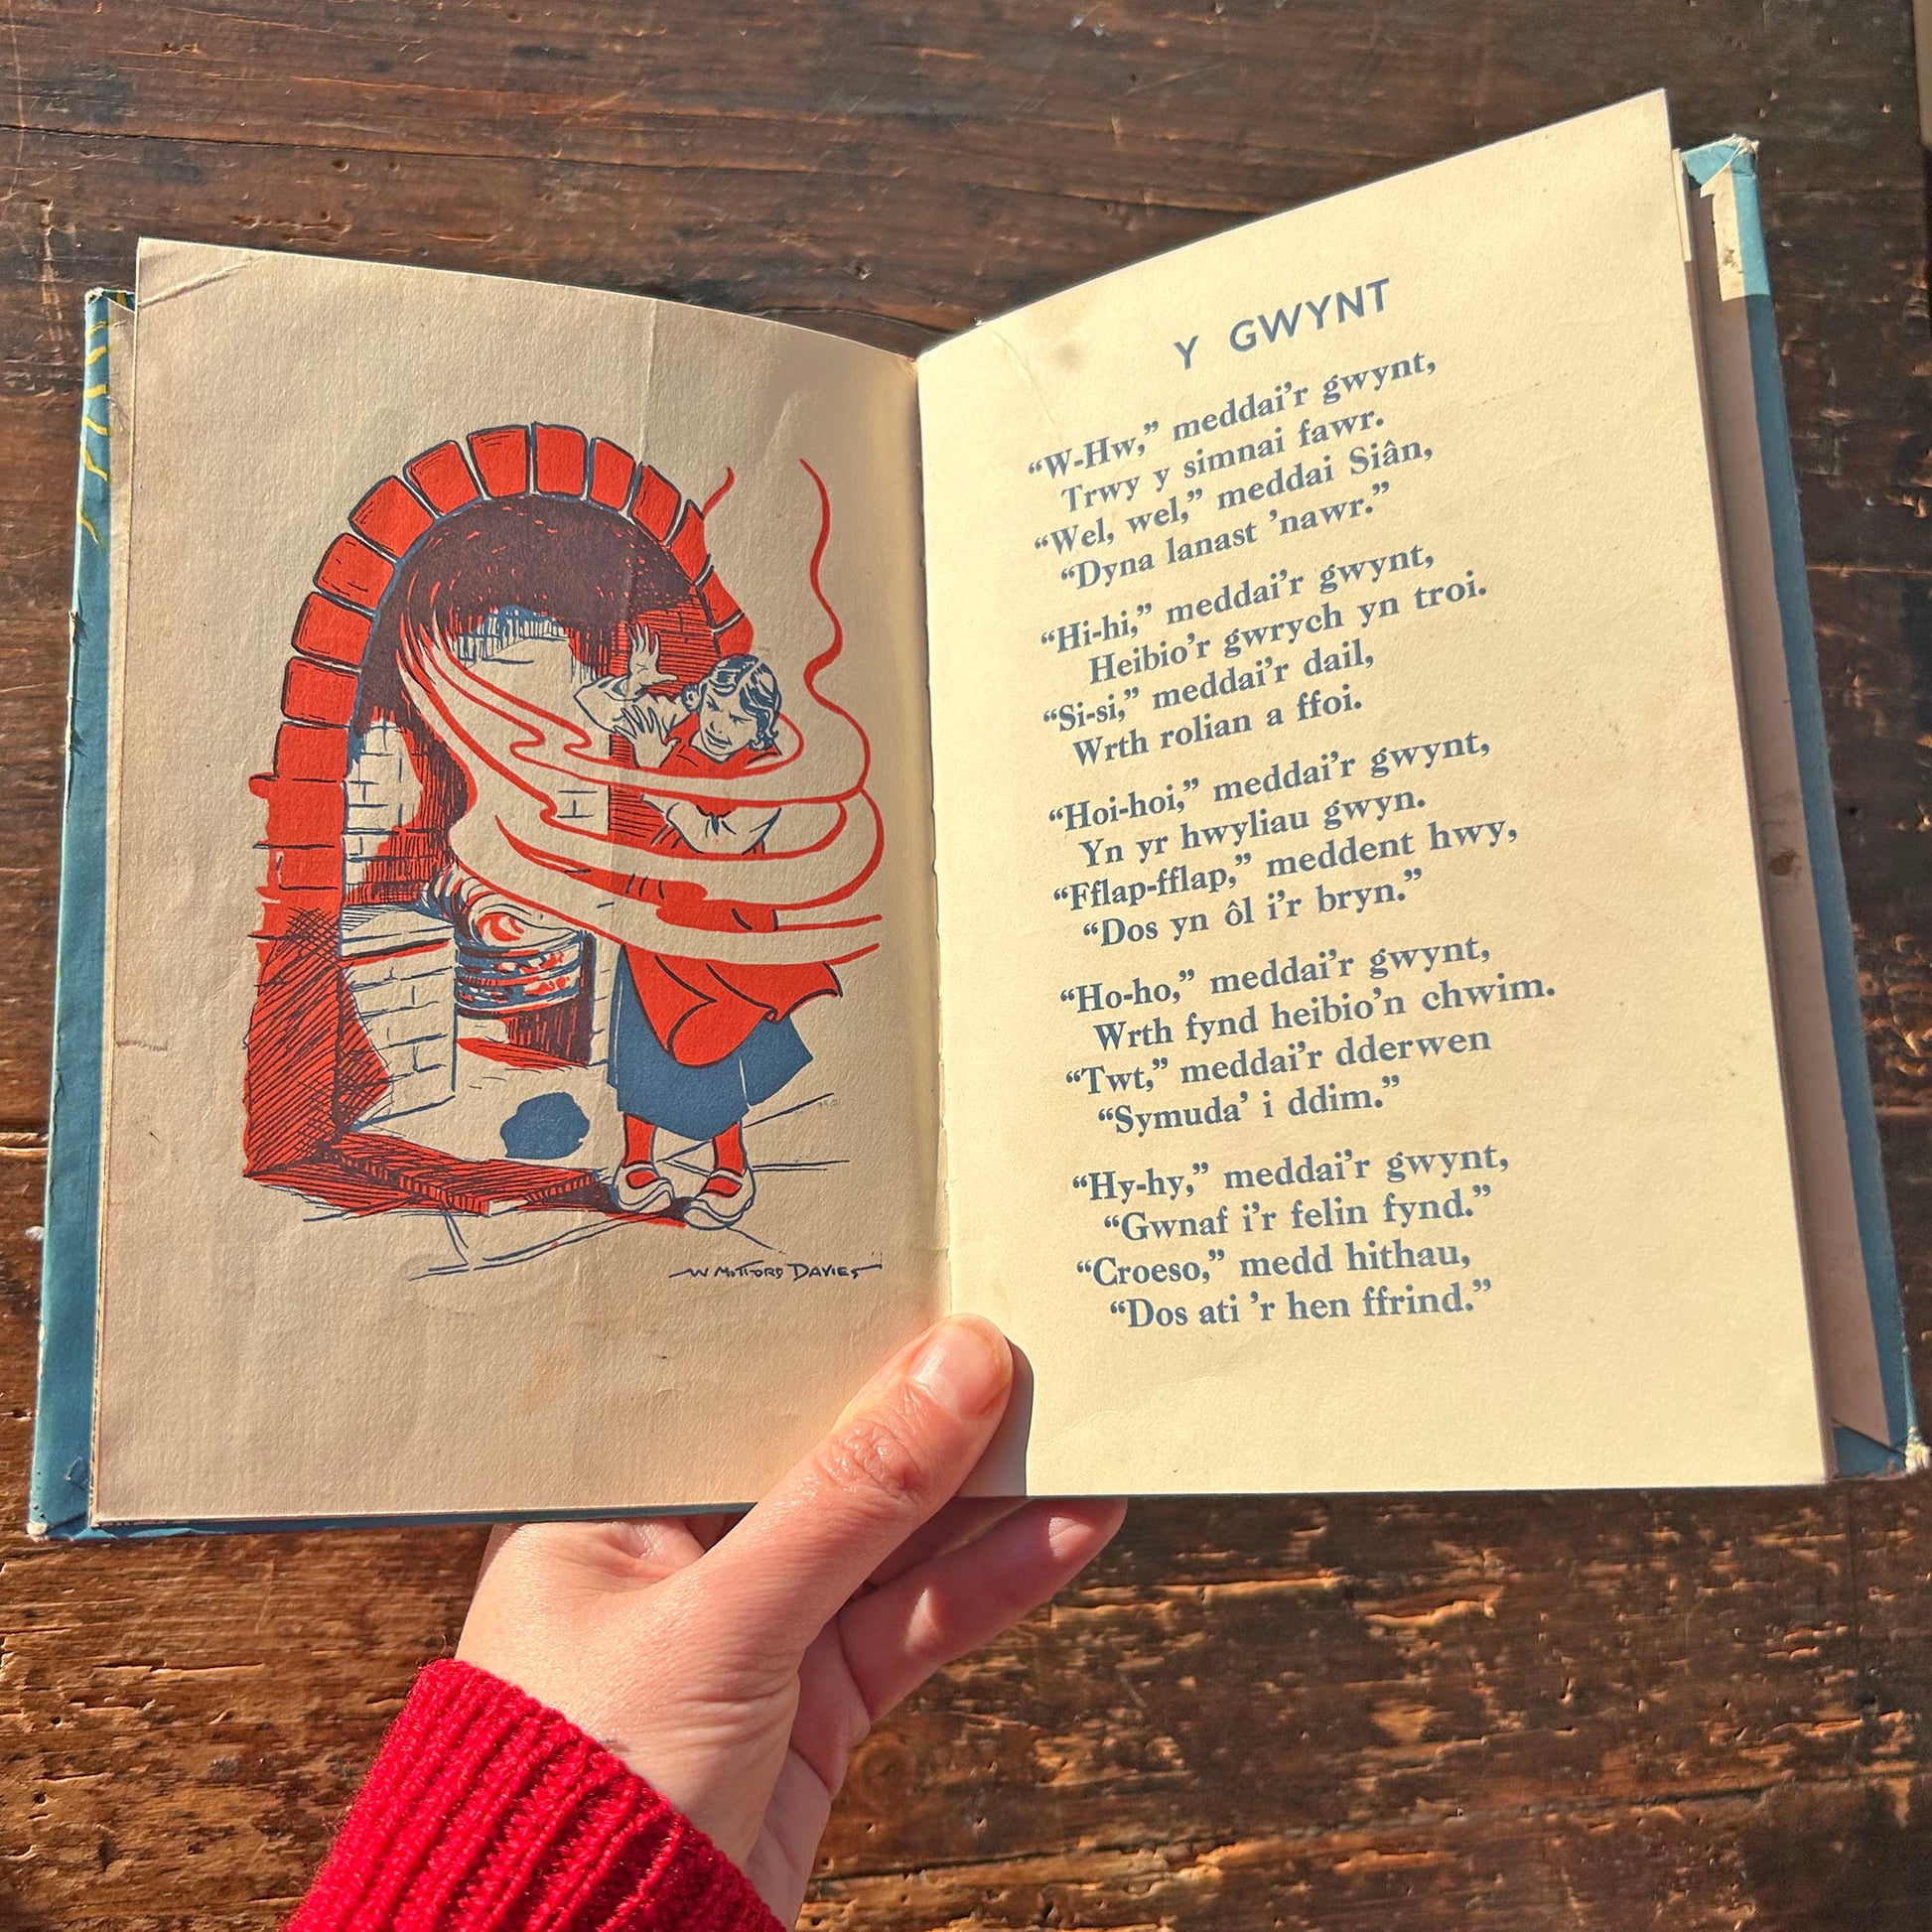 W MITFORD DAVIES
Y GWYNT
“W-Hw,” meddai’r gwynt,
Trwy y simnai fawr.
“Wel, wel,” meddai Siân,
“Dyna lanast ’nawr.”
“Hi-hi,” meddai’r gwynt,
Heibio’r gwrych yn troi.
“Si-si,” meddai’r dail,
Wrth rolian a ffoi.
“Hoi-hoi,” meddai’r gwynt,
Yn yr hwyliau gwyn.
“Fflap-fflap,” meddent hwy,
“Dos yn ôl i’r bryn.”
“Ho-ho,” meddai’r gwynt,
Wrth fynd heibio’n chwim.
“Twt,” meddai’r dderwen
“Symuda’ i ddim.”
“Hy-hy,” meddai’r gwynt,
“Gwnaf i’r felin fynd.”
“Croeso,” medd hithau,
“Dos ati ’r hen ffrind.”